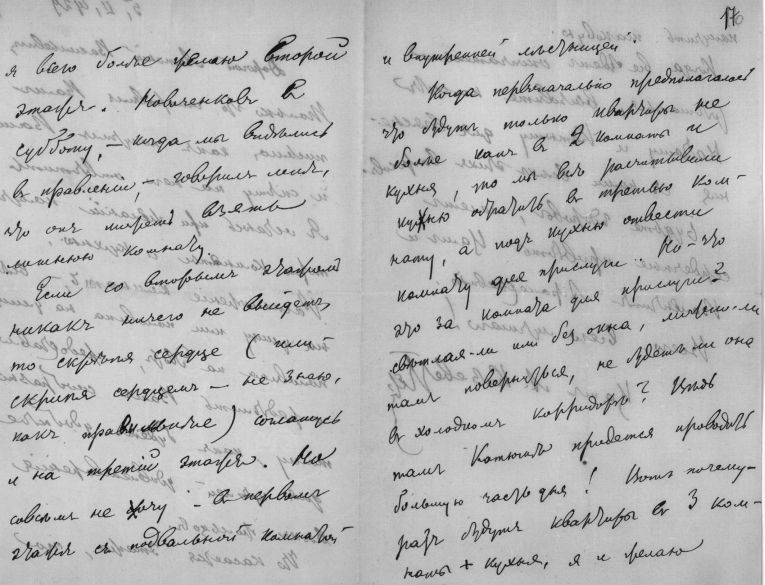 я всего более желаю второй
этажъ. Новоченковъ въ
субботу, – когда мы видѣлись
въ правленіи, – говорилъ мнѣ,
что онъ можетъ взять
лишнюю комнату.
Если со вторымъ этажомъ
никакъ ничего не выйдетъ,
то скрѣпя сердце (или
скрипя сердцемъ – не знаю,
какъ правильнѣе) соглашусь
и на третій этажъ. Но
совсѣмъ не хочу – въ первомъ
этажѣ съ подвальной комнатой
17
и внутренней лѣстницей.
Когда первоначально предполагалось
что будутъ только квартиры не
болѣе какъ въ 2 комнаты и
кухня, то мы всѣ расчитывали
кухню обратить въ третью ком-
нату, а подъ кухню отвести
комнату для прислуги. Но – что
это за комната для прислуги?
свѣтлая-ли или безъ окна, можно-ли
тамъ повернуться, не будетъ ли она
въ холодномъ корридорѣ? Вѣдь
тамъ придется проводить
большую часть дня! Вотъ почему –
разъ будутъ квартиры въ 3 ком-
наты + кухня, я и желаю